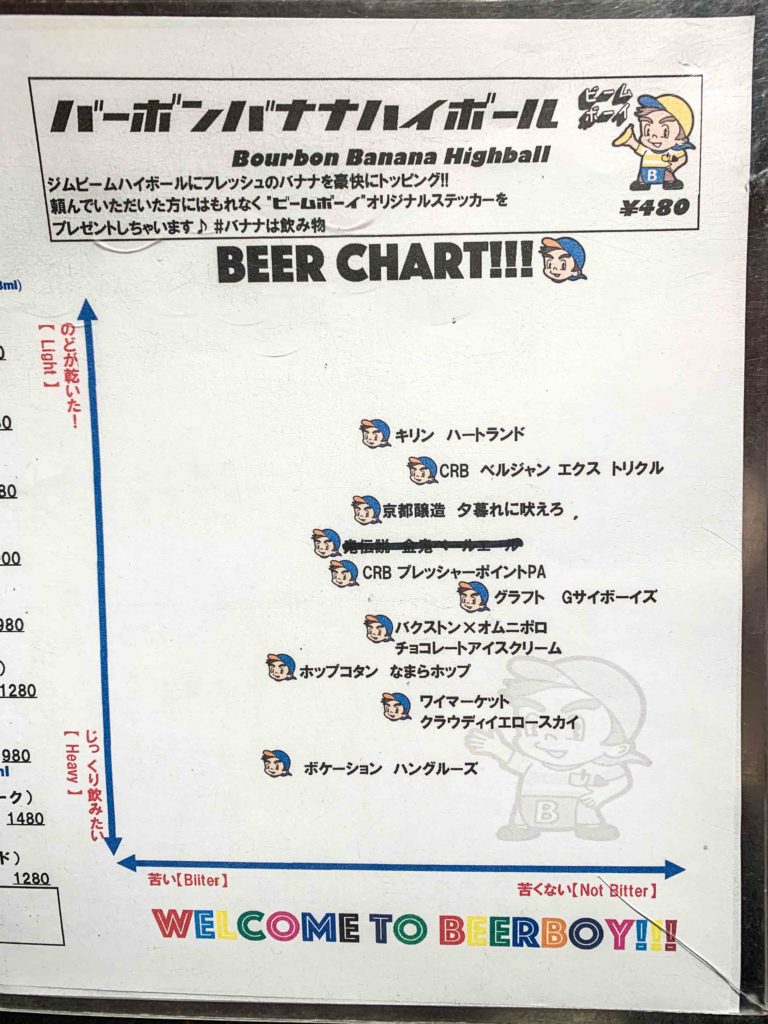 バーボンバナナハイボール
ビーム
ボーイ
Bourbon Banana Highball
ジムビームハイボールにフレッシュのバナナを豪快にトッピング!!
頼んでいただいた方にはもれなく "ビームボーイ"オリジナルステッカーを
プレゼントしちゃいます♪ #バナナは飲み物
¥480
B
BEER CHART!!!
のどが乾いた!
【 Light 】
キリン ハートランド
CRB ベルジャン エクス トリクル
京都醸造 夕暮れに吠えろ
鬼伝説 金鬼ペールエール
CRB プレッシャーポイントPA
グラフト Gサイボーイズ
バクストン×オムニポロ
チョコレートアイスクリーム
ホップコタン なまらホップ
ワイマーケット
クラウディイエロースカイ
ボケーション ハングルーズ
B
じっくり飲みたい
【 Heavy 】
980
1280
980
ml
ーク)
1480
ド)
1280
苦い【Biiter】
苦くない【Not Bitter】
WELCOME TO BEERBOY!!!